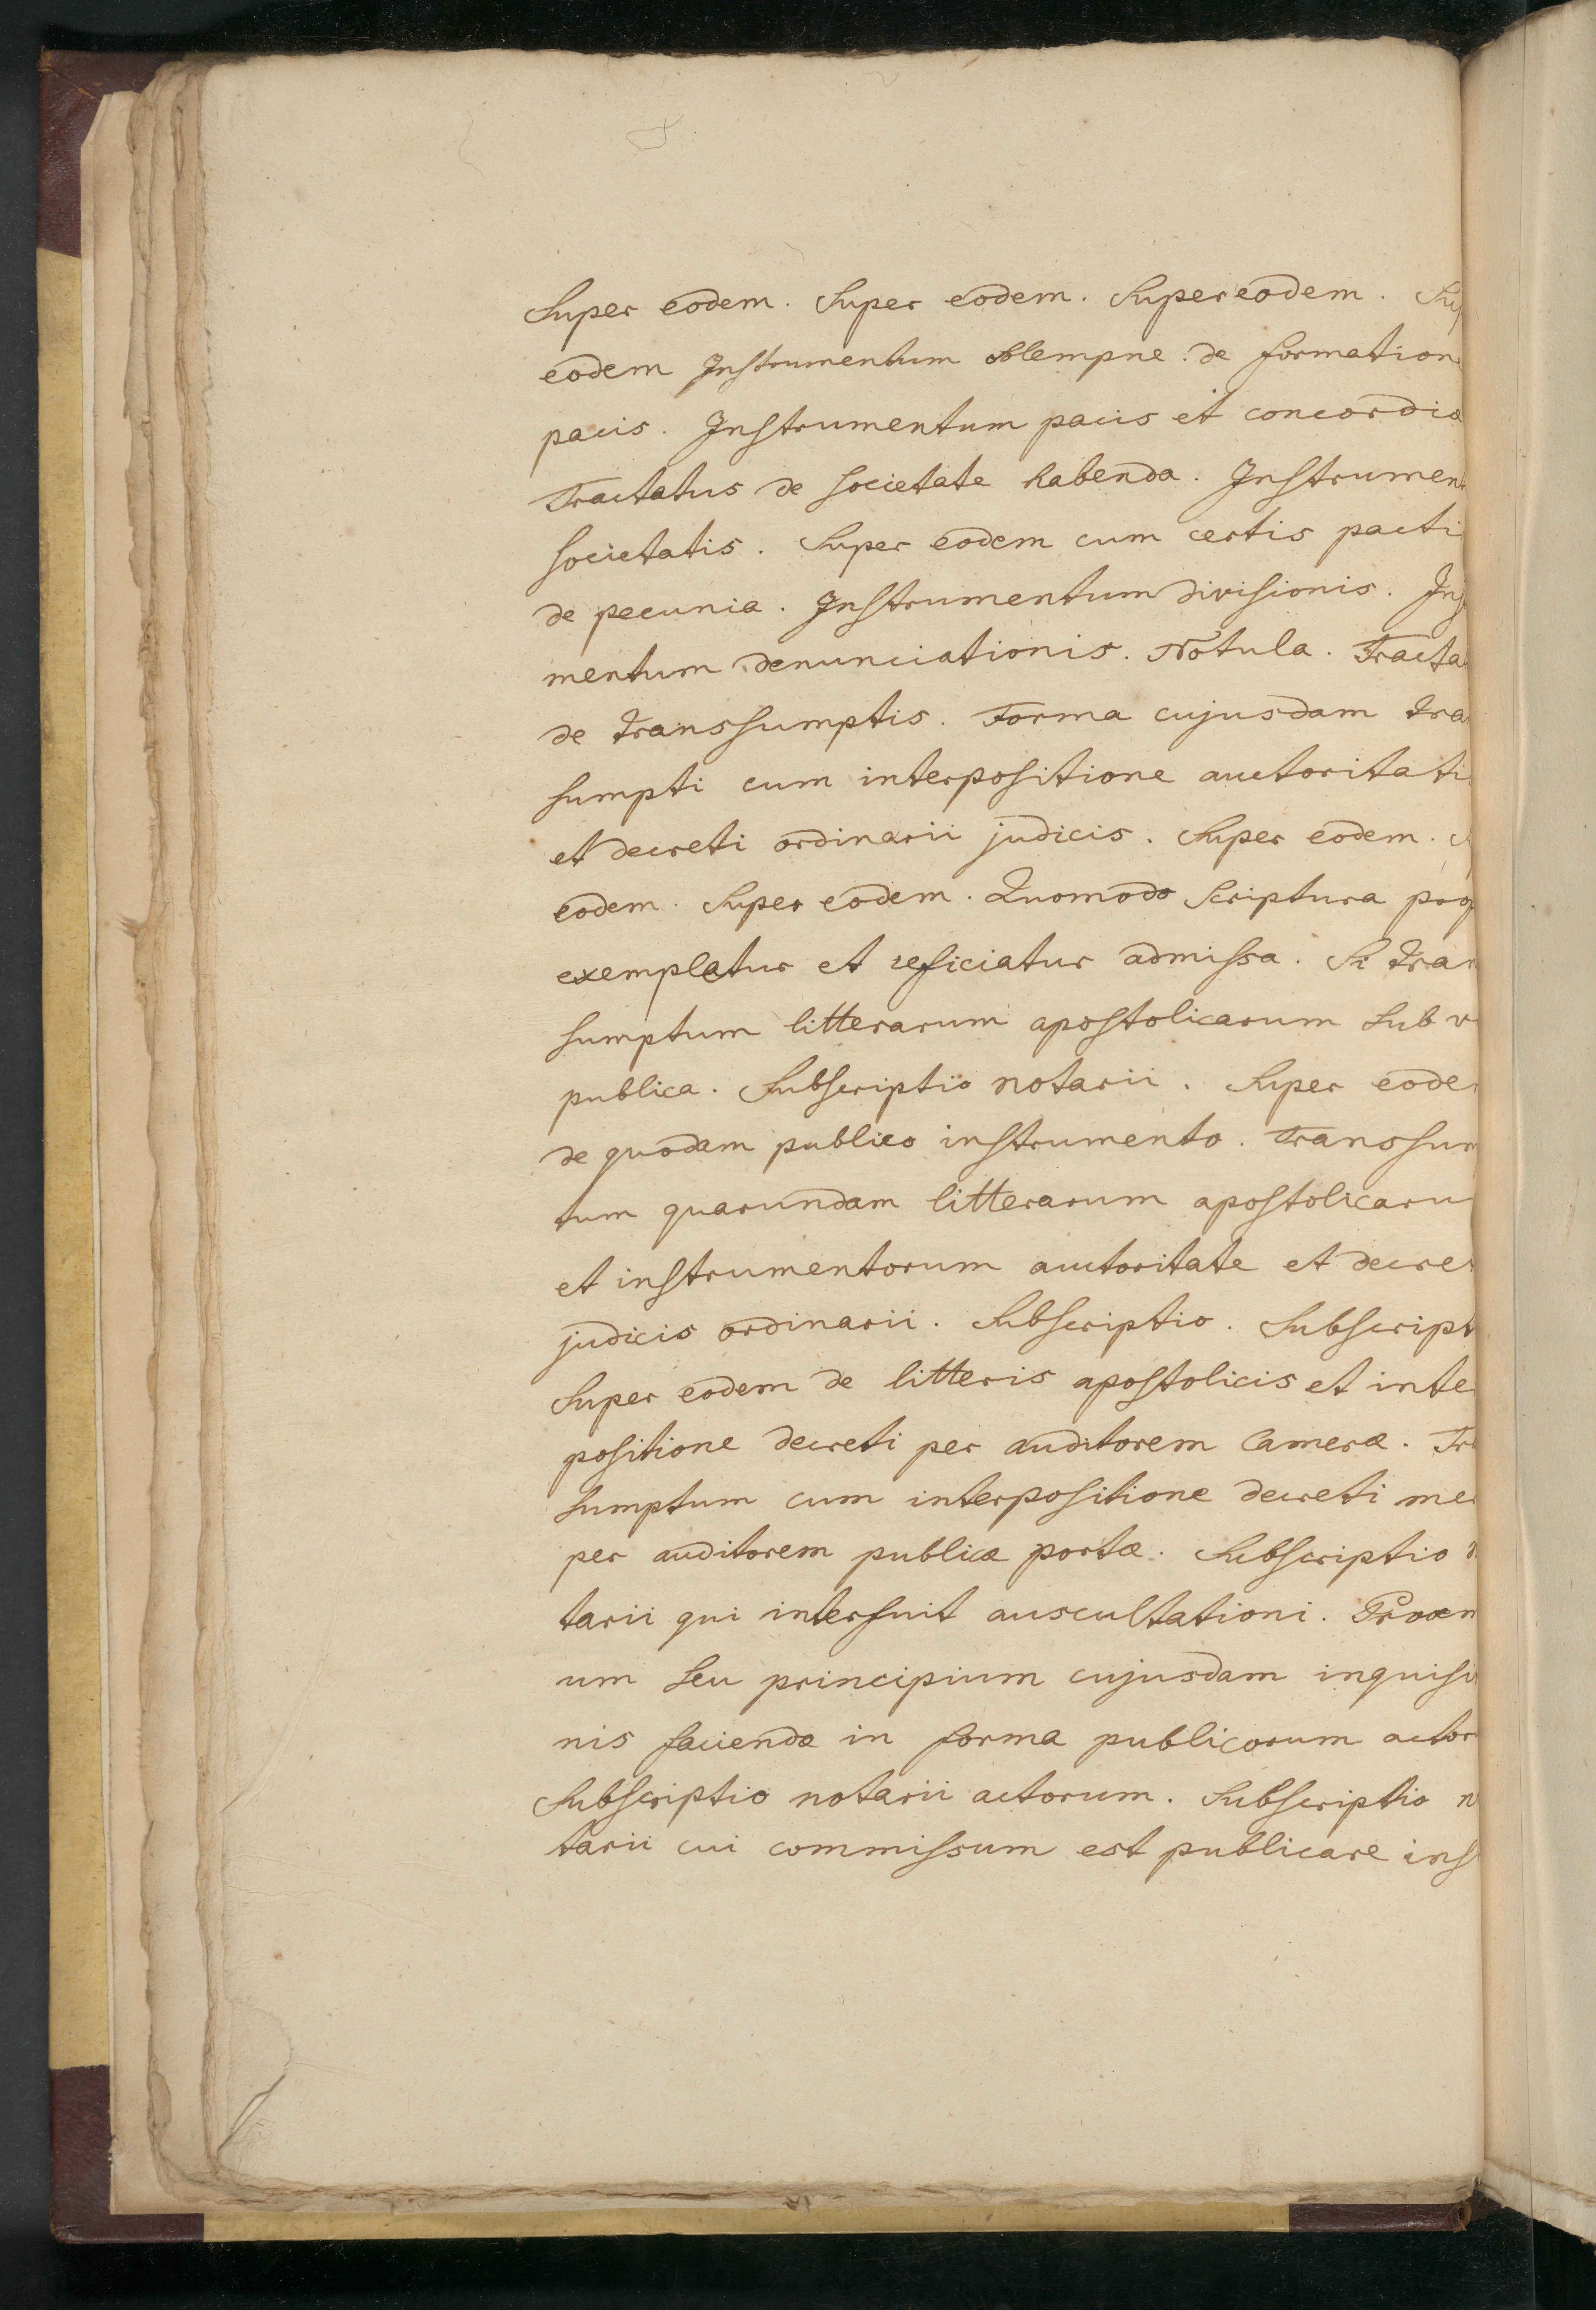 Super eodem. Super eodem. Super eodem. Sup
eodem Instrumentum solempne de formation
pacis. Instrumentum pacis et concordia
Tractatus de societate habenda. Instrumen
societatis. Super eodem cum certis pacti
de pecunia. Instrumentum divisionis. Ins
mentum denunciationis. Notula. Tracta
de transsumptis. Forma cujusdam tra
sumpti cum interpositione auctoritati
et decreti ordinarii judicis. Super eodem.
eodem. Super eodem. Quomodo scriptura prop
exempletur et reficiatur admissa. Si tran
sumptum litterarum apostolicarum sub v
publica. Subscriptio notarii. Super eode
de quodam publico instrumento. Transsum
tum quarundam litterarum apostolicaru
et instrumentorum auctoritate et decret
judicis ordinarii. Subscriptio. Subscript
Super eodem de litteris apostolicis et inte
positione decreti per auditorem Cameræ. Tra
sumptum cum interpositione decreti me
per auditorem publicæ portæ. Subscriptio n
tarii qui interfuit auscultationi. Proœm
um seu principium cujusdam inquisi
nis faciendæ in forma publicorum actor
Subscriptio notarii actorum. Subscriptio n
tarii cui commissum est publicare ins